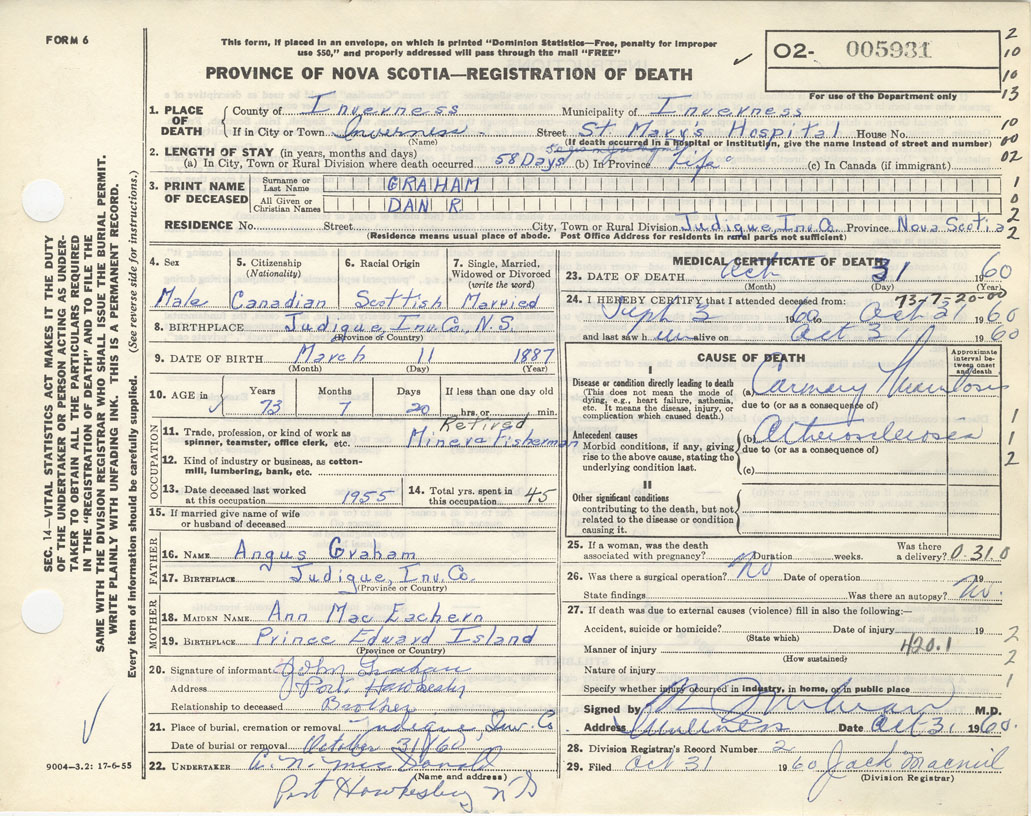 FORM 6
This form, if placed in an envelope, on which is printed "Dominion Statistics—Free, penalty for improper
use $50," and properly addressed will pass through the mail "FREE"
PROVINCE OF NOVA SCOTIA—REGISTRATION OF DEATH
02- 005931
For use of the Department only
2
10
10
13
10
00
02
1
0
2
2
SEC. 14—VITAL STATISTICS ACT MAKES IT THE DUTY
OF THE UNDERTAKER OR PERSON ACTING AS UNDER-
TAKER TO OBTAIN ALL THE PARTICULARS REQUIRED
IN THE "REGISTRATION OF DEATH" AND TO FILE THE
SAME WITH THE DIVISION REGISTRAR WHO SHALL ISSUE THE BURIAL PERMIT.
WRITE PLAINLY WITH UNFADING INK. THIS IS A PERMANENT RECORD.
Every item of information should be carefully supplied. (See reverse side for instructions.)
1. PLACE OF DEATH
County of Inverness Municipality of Inverness
If in City or Town Inverness Street St Mary's Hospital House No.
(Name) (If death occurred in a hospital or institution, give the name instead of street and number)
2. LENGTH OF STAY (in years, months and days)
(a) In City, Town or Rural Division where death occurred 58 Days (b) In Province Life (c) In Canada (if immigrant)
3. PRINT NAME OF DECEASED
Surname or Last Name GRAHAM
All Given or Christian Names DAN R
RESIDENCE No. Street City, Town or Rural Division Judique, Inv. Co. Province Nova Scotia
(Residence means usual place of abode. Post Office Address for residents in rural parts not sufficient)
4. Sex 5. Citizenship (Nationality) 6. Racial Origin 7. Single, Married, Widowed or Divorced (write the word)
Male Canadian Scottish Married
8. BIRTHPLACE Judique, Inv. Co., N.S.
(Province or Country)
9. DATE OF BIRTH March 11 1887
(Month) (Day) (Year)
10. AGE in Years Months Days If less than one day old
73 7 20 hrs. or min.
OCCUPATION
11. Trade, profession, or kind of work as spinner, teamster, office clerk, etc. Retired
Miner & Fisherman
12. Kind of industry or business, as cotton-mill, lumbering, bank, etc.
13. Date deceased last worked at this occupation 1955 14. Total yrs. spent in this occupation 45
15. If married give name of wife or husband of deceased
FATHER
16. NAME Angus Graham
17. BIRTHPLACE Judique, Inv. Co.
(Province or Country)
MOTHER
18. MAIDEN NAME Ann Mac Eachern
19. BIRTHPLACE Prince Edward Island
(Province or Country)
20. Signature of informant John Graham
Address Port Hawkesbury
Relationship to deceased Brother
21. Place of burial, cremation or removal Judique, Inv. Co
Date of burial or removal October 31/60
22. UNDERTAKER A. N. MacDonald
(Name and address)
Port Hawkesbury N S
9004-3.2: 17-6-55
MEDICAL CERTIFICATE OF DEATH
23. DATE OF DEATH Oct 31 1960
(Month) (Day) (Year)
73-7-20-00
24. I HEREBY CERTIFY that I attended deceased from:
Sept 3 1960 to Oct 31 1960
and last saw him alive on Oct 31 1960
CAUSE OF DEATH
Approximate interval between onset and death
I
Disease or condition directly leading to death
(This does not mean the mode of dying, e.g., heart failure, asthenia, etc. It means the disease, injury, or complication which caused death.)
(a) Coronary Thrombosis
due to (or as a consequence of)
Antecedent causes
Morbid conditions, if any, giving rise to the above cause, stating the underlying condition last.
(b) Atherosclerosis
due to (or as a consequence of)
(c)
1
1
2
II
Other significant conditions
contributing to the death, but not related to the disease or condition causing it.
25. If a woman, was the death associated with pregnancy? Duration weeks. Was there a delivery? 0.31.0
26. Was there a surgical operation? No Date of operation 19
State findings Was there an autopsy? No.
27. If death was due to external causes (violence) fill in also the following:—
Accident, suicide or homicide? Date of injury 19 2
(State which)
Manner of injury 420.1 2
(How sustained)
Nature of injury 1
Specify whether injury occurred in industry, in home, or in public place
Signed by M.D.
Address Inverness Date Oct 31 1960.
28. Division Registrar's Record Number 2
29. Filed Oct 31 1960 Jack Macneil
(Division Registrar)